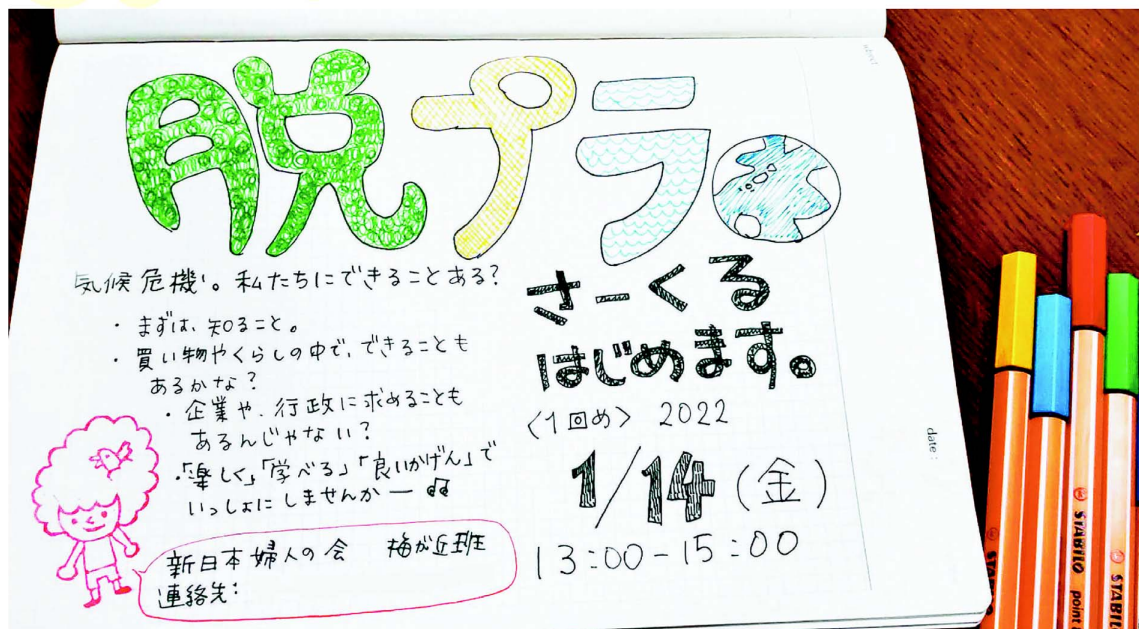 脱プラ
気候危機。私たちにできることある?
・まずは、知ること。
・買い物やくらしの中で、できることも
あるかな?
・企業や、行政に求めることも
あるんじゃない?
・「楽しく」「学べる」「良いかげん」で
いっしょにしませんかー♫
新日本婦人の会 梅が丘班
連絡先:
さーくる
はじめます。
〈1回め〉 2022
1/14(金)
13:00-15:00
date:
STABILO
STABILO point
STABILO